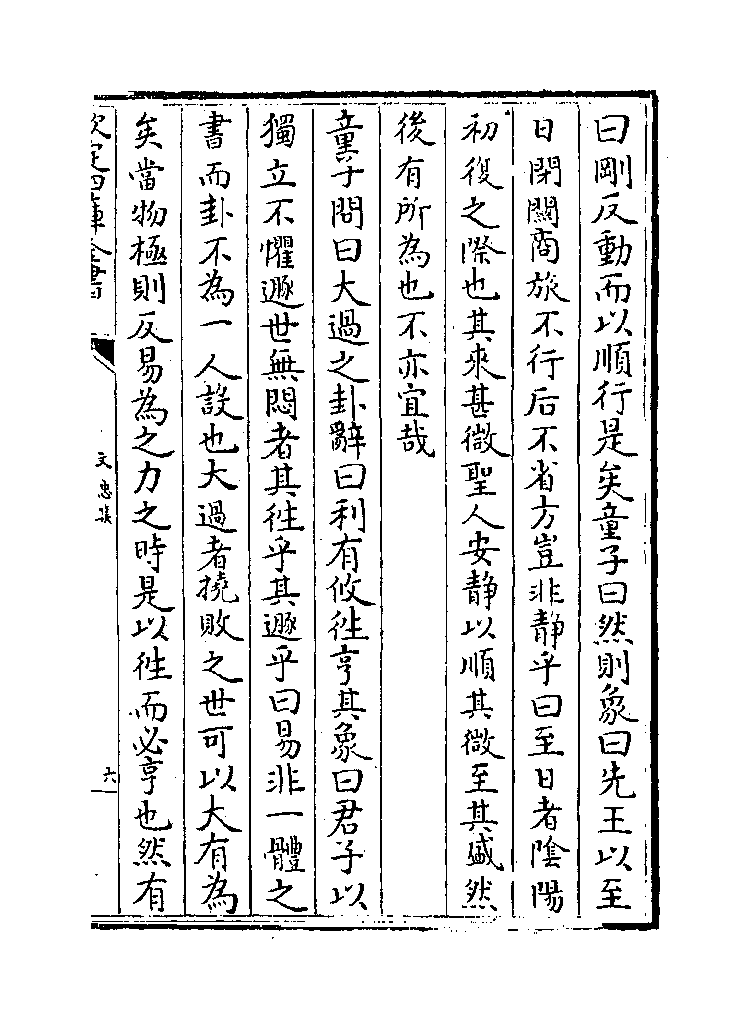 曰剛反動而以順行是矣童子曰然則象曰先王以至
日閉關商旅不行后不省方豈非静乎曰至日者陰陽
初復之際也其來甚微聖人安静以順其微至其盛然
後有所為也不亦宜哉
童子問曰大過之卦辭曰利有攸徃亨其象曰君子以
獨立不懼遯世無悶者其徃乎其遯乎曰易非一體之
書而卦不為一人設也大過者撓敗之世可以大有為
矣當物極則反易為之力之時是以徃而必亨也然有
欽定四庫全書
文忠集
六